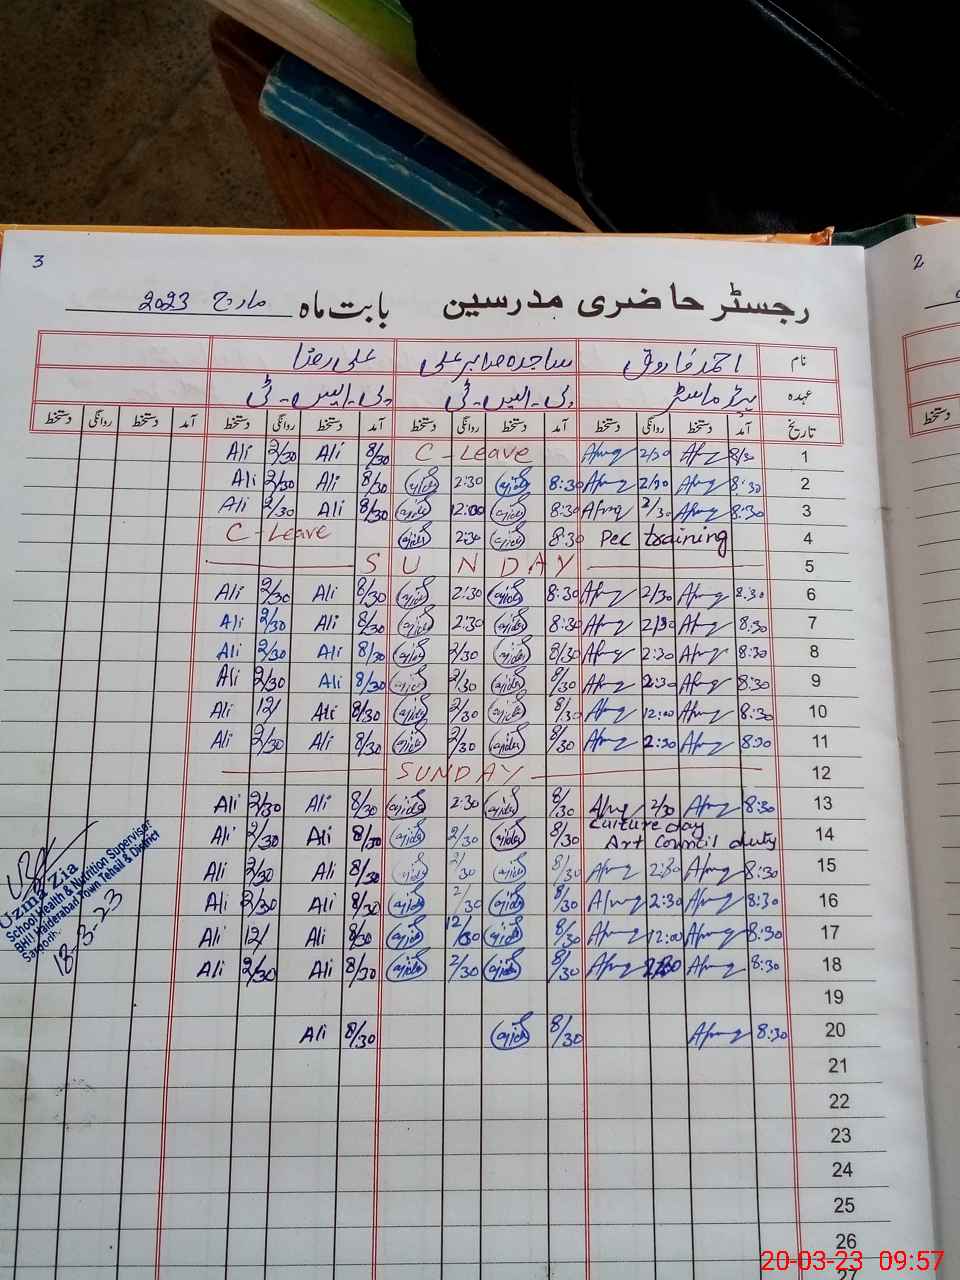 3
2
رجسٹر حاضری مدرسین بابت ماہ مارچ 2023
نام احمد فاروق ساجدہ صابر علی علی رضا
عہدہ ہیڈ ماسٹر پی۔ایس۔ٹی پی۔ایس۔ٹی
تاریخ آمد دستخط روانگی دستخط آمد دستخط روانگی دستخط آمد دستخط روانگی دستخط آمد دستخط روانگی دستخط
Ali 2/30 Ali 8/30 C-Leave 2/30 8/30 1
Ali 2/30 Ali 8/30 2:30 8:30 2/30 8:30 2
Ali 2/30 Ali 8/30 12:00 8:30 2/30 8:30 3
C-Leave 2:30 8:30 Pec training 4
SUNDAY 5
Ali 2/30 Ali 8/30 2:30 8:30 2/30 8:30 6
Ali 2/30 Ali 8/30 2:30 8:30 2/30 8:30 7
Ali 2/30 Ali 8/30 2/30 8/30 2:30 8:30 8
Ali 2/30 Ali 8/30 2/30 8/30 2:30 8:30 9
Ali 12/ Ali 8/30 2/30 8/30 12:00 8:30 10
Ali 2/30 Ali 8/30 2/30 8/30 2:30 8:30 11
SUNDAY 12
Ali 2/30 Ali 8/30 2:30 8/30 2/30 8:30 13
Culture day
Ali 2/30 Ali 8/30 2/30 8/30 Art Council duty 14
Ali 2/30 Ali 8/30 2/30 8/30 2:30 8:30 15
Ali 2/30 Ali 8/30 2/30 8/30 2:30 8:30 16
Ali 12/ Ali 8/30 12/30 8/30 12:00 8:30 17
Ali 2/30 Ali 8/30 2/30 8/30 2:30 8:30 18
19
Ali 8/30 8/30 8:30 20
21
22
23
24
25
26
27
Uzma Zia
School Health & Nutrition Supervisor
BHU Haiderabad Town Tehsil & District
Sargodha.
18-3-23
20-03-23 09:57